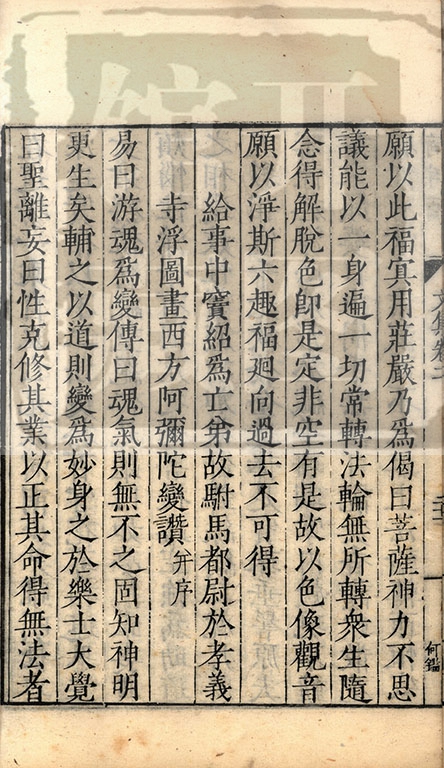 願以此福冥用莊嚴乃爲偈曰菩薩神力不思
議能以一身遍一切常轉法輪無所轉衆生隨
念得解脫色卽是定非空有是故以色像觀音
願以淨斯六趣福廻向過去不可得
給事中竇紹爲亡弟故駙馬都尉於孝義
寺浮圖畫西方阿彌陀變讚并序
易曰游魂爲變傳曰魂氣則無不之固知神明
更生矣輔之以道則變爲妙身之於樂士大覺
曰聖離妄曰性克修其業以正其命得無法者
何鑑